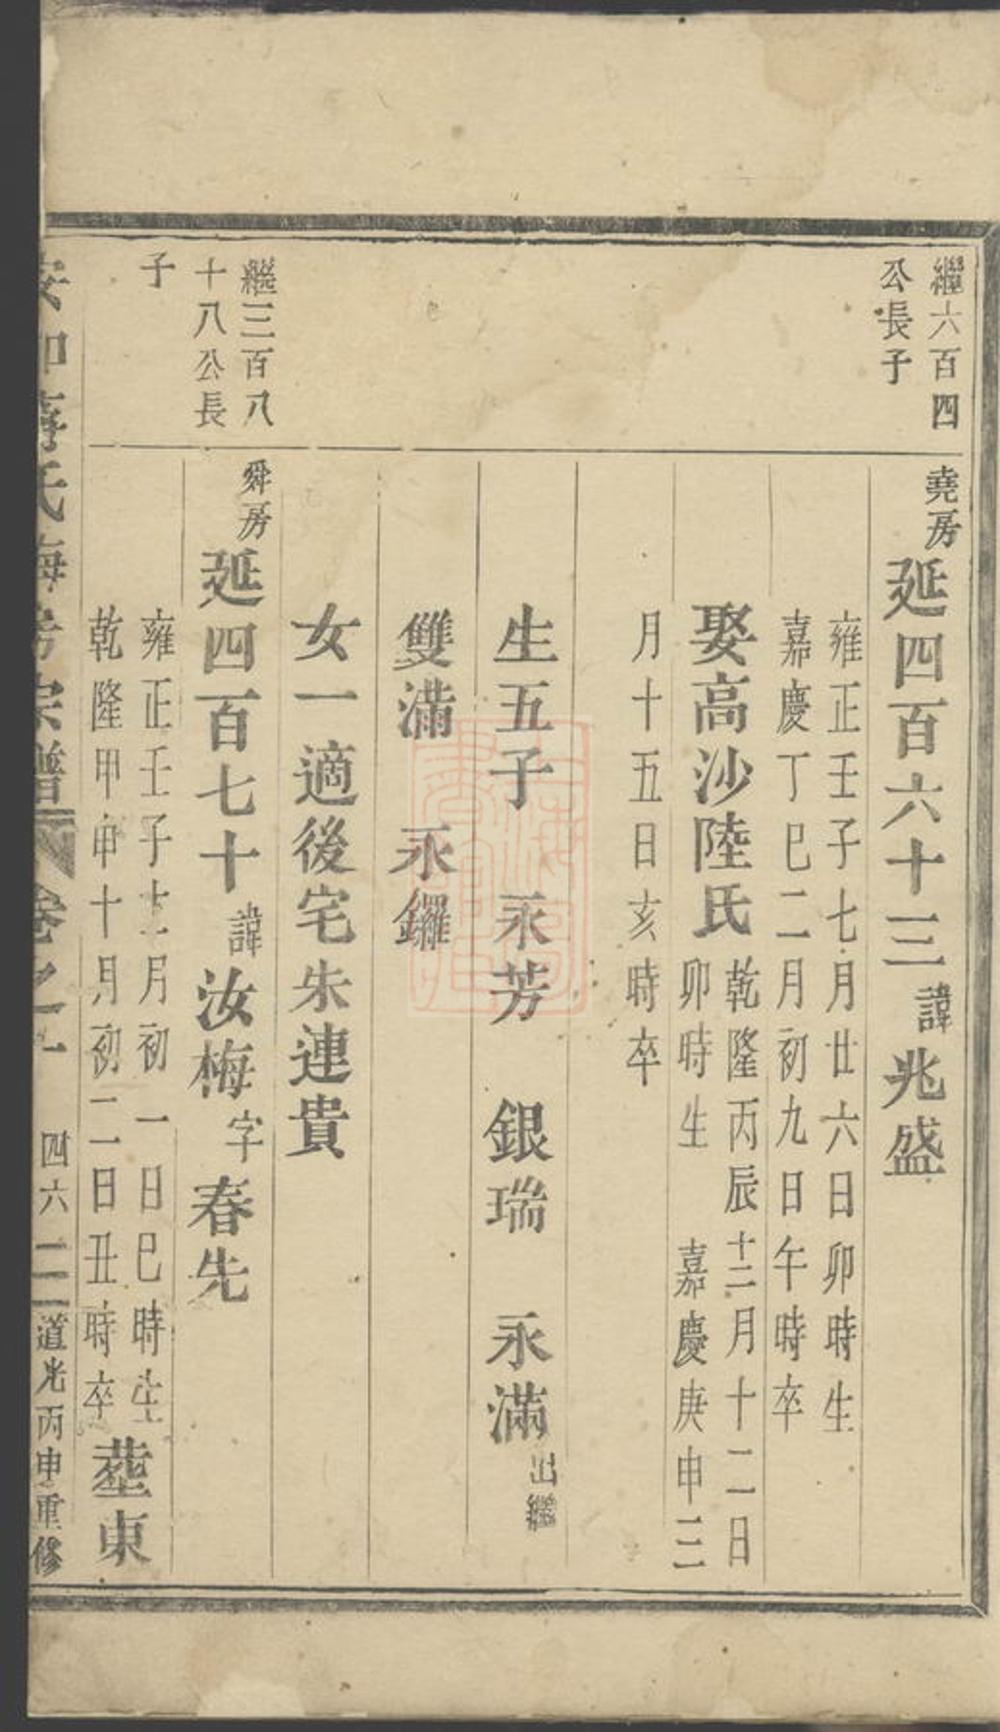 繼六百四
公長子
堯房 延四百六十三 諱 兆盛
雍正壬子七月廿六日卯時生
嘉慶丁巳二月初九日午時卒
娶高沙陸氏 乾隆丙辰十二月十二日
卯時生 嘉慶庚申三
月十五日亥時卒
生五子 永芳 銀瑞 永滿 出繼
雙滿 永鑼
女一適後宅朱連貴
繼三百八
十八公長
子
舜房 延四百七十 諱 汝梅 字 春先
雍正壬子十二月初一日巳時生
乾隆甲申十月初二日丑時卒 塟東
氏 宗譜 卷之一 四六 二 道光丙申重修